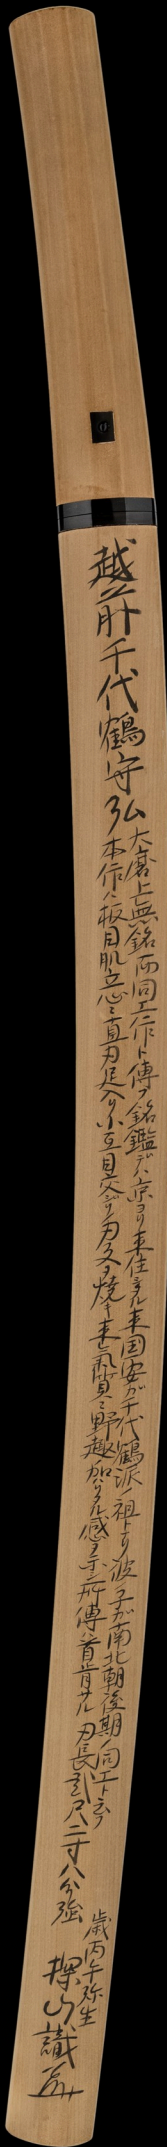 越前千代鶴守弘
大磨上無銘而同工作ト傳フ銘鑑デハ京ヨリ来住セル来国安ガ千代鶴派ノ祖トナリ彼ノ子ガ南北朝後期ノ同工ト云フ
本作ハ板目肌立心ニ直刃足入リ小互目交ジリノ刃文ヲ焼キ来氣質ニ野趣加ハリタル感ヲ示シ所傳ハ首肯サル 刃長貳尺二寸八分強
歳丙午弥生
探山識